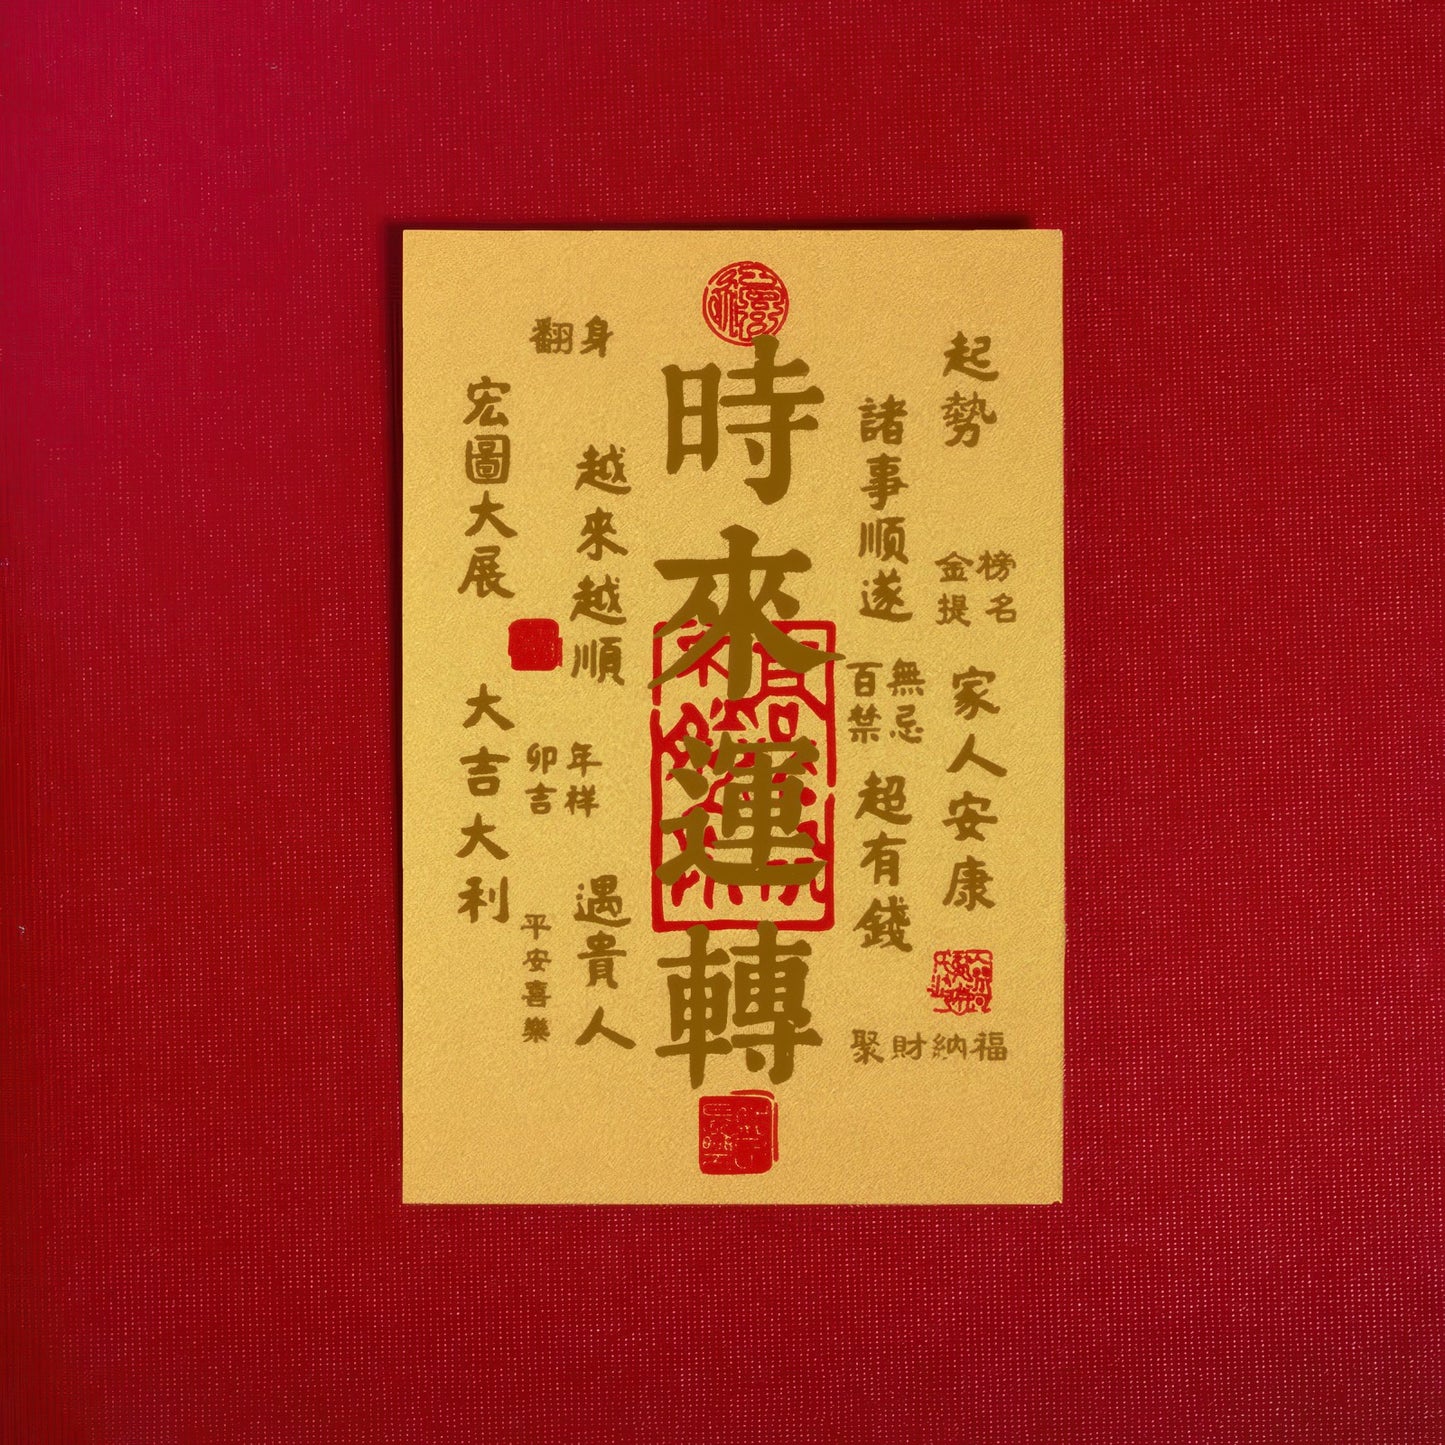 時來運轉
起勢
諸事順遂
金榜
提名
家人安康
百無
禁忌
超有錢
聚財納福
翻身
宏圖大展
越來越順
大吉大利
卯年
吉祥
遇貴人
平安喜樂